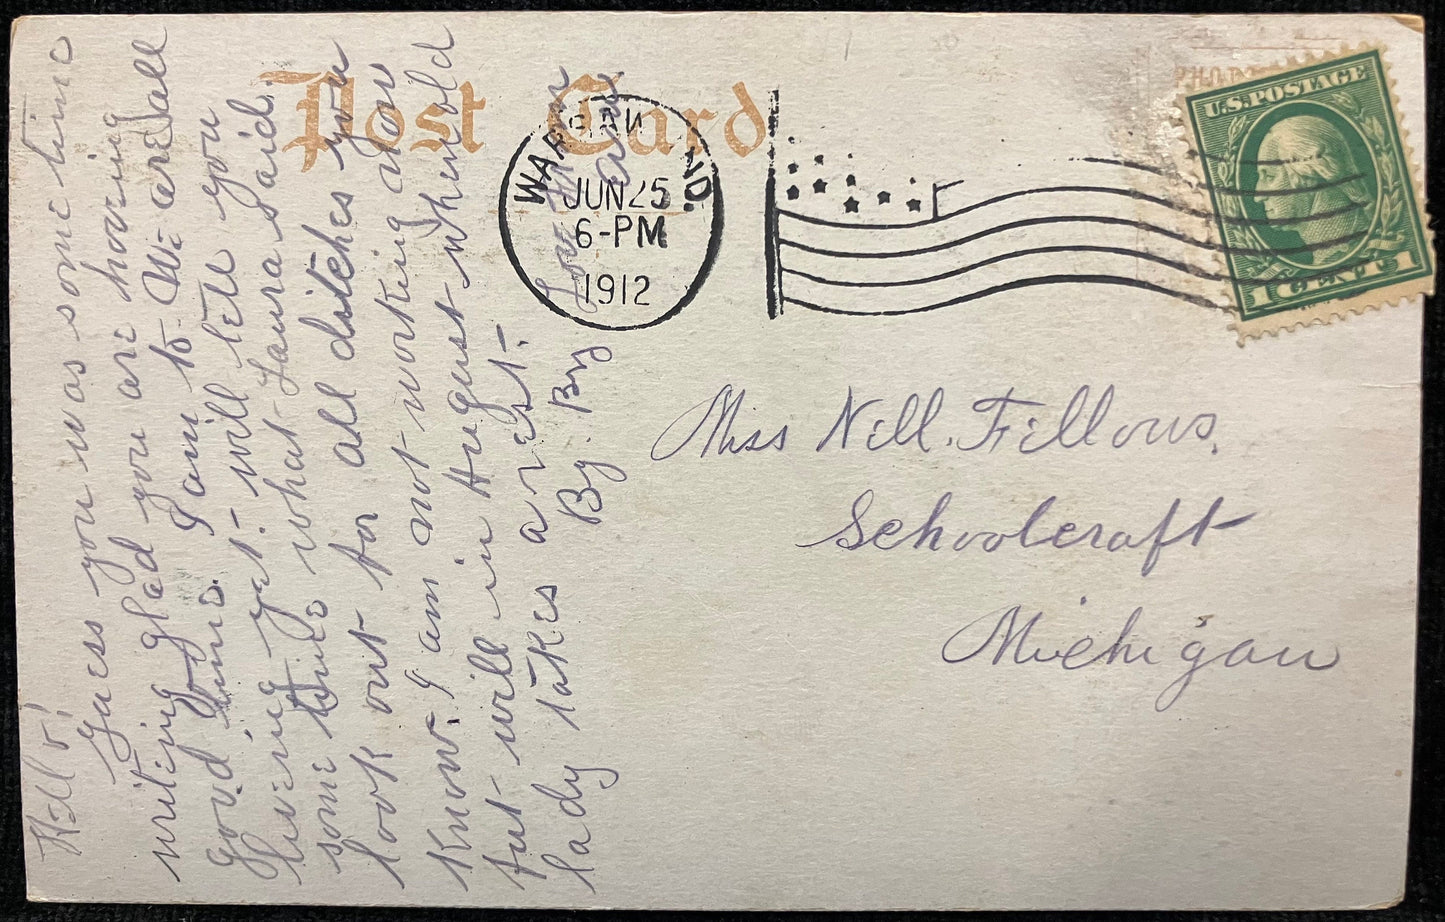 Post Card
WARREN IND.
JUN 25
6-PM
1912
U.S. POSTAGE
1 CENT 1
Hello!
Guess you was some time
writing glad you are having
good time. I am to. We are all
living yet. will tell you
some time what Laura said.
look out for all ditches you
know. I am not working now
but will in August when old
lady takes a rest.
By. By
from
Miss Nell. Fellows.
Schoolcraft
Michigan